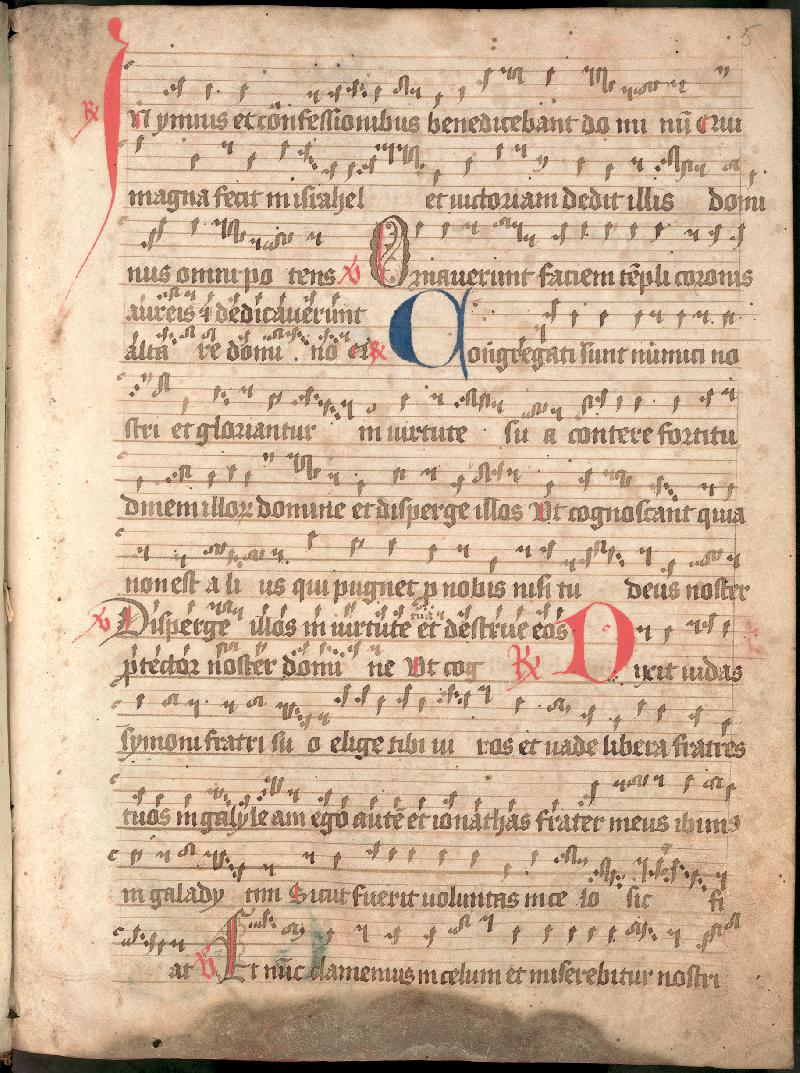 5
℟ In ymnis et cōfessionibus benedicebant do mi nū Qui
magna fecit in israhel et uictoriam dedit illis domi
nus omnipo tens ℣ Ornauerunt faciem tēpli coronis
aureis ⁊ dedicauerunt
alta re domi no ℟ Congregati sunt inimici no
stri et gloriantur in uirtute su a contere fortitu
dinem illoꝝ domine et disperge illos Ut cognoscant quia
non est a li us qui pugnet ꝓ nobis nisi tu deus noster
℣ Disperge illos in uirtute tua et destrue eos
ꝓtector noster domi ne Ut cog ℟ Dixit iudas
symoni fratri su o elige tibi ui ros et uade libera fratres
tuos in galyleam ego autē et ionathas frater meus ibimꝰ
in galady tim Sicut fuerit uoluntas in ce lo sic fi
at ℣ Et nūc clamemus in celum et miserebitur nostri